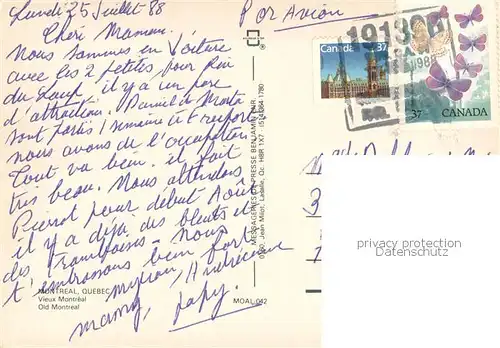 Lundi 25 Juillet 88
Par Avion
Cheri Maman.
Nous sommes en Voiture
avec les 2 petites pour
du Loup il y a un parc
d'attraction. Daniel et
sont partis 1 semaine et
nous avons de l'occupation
Tout va bien. il fait
tres beau. Nous attendons
Pierrot pour debut Août
il y a déja des bleuets et
des framboises - Nous
t'embrassons bien fort
mamy, papy.
Canada 37
191300
37 CANADA
MESSAGERIES DE PRESSE BENJAMIN ENR.
Jean Milot, Lasalle, Qc H8R 1X7 (514) 364-1780
MONTREAL, QUEBEC
Vieux Montréal
Old Montreal
MOAL.042
privacy protection
Datenschutz